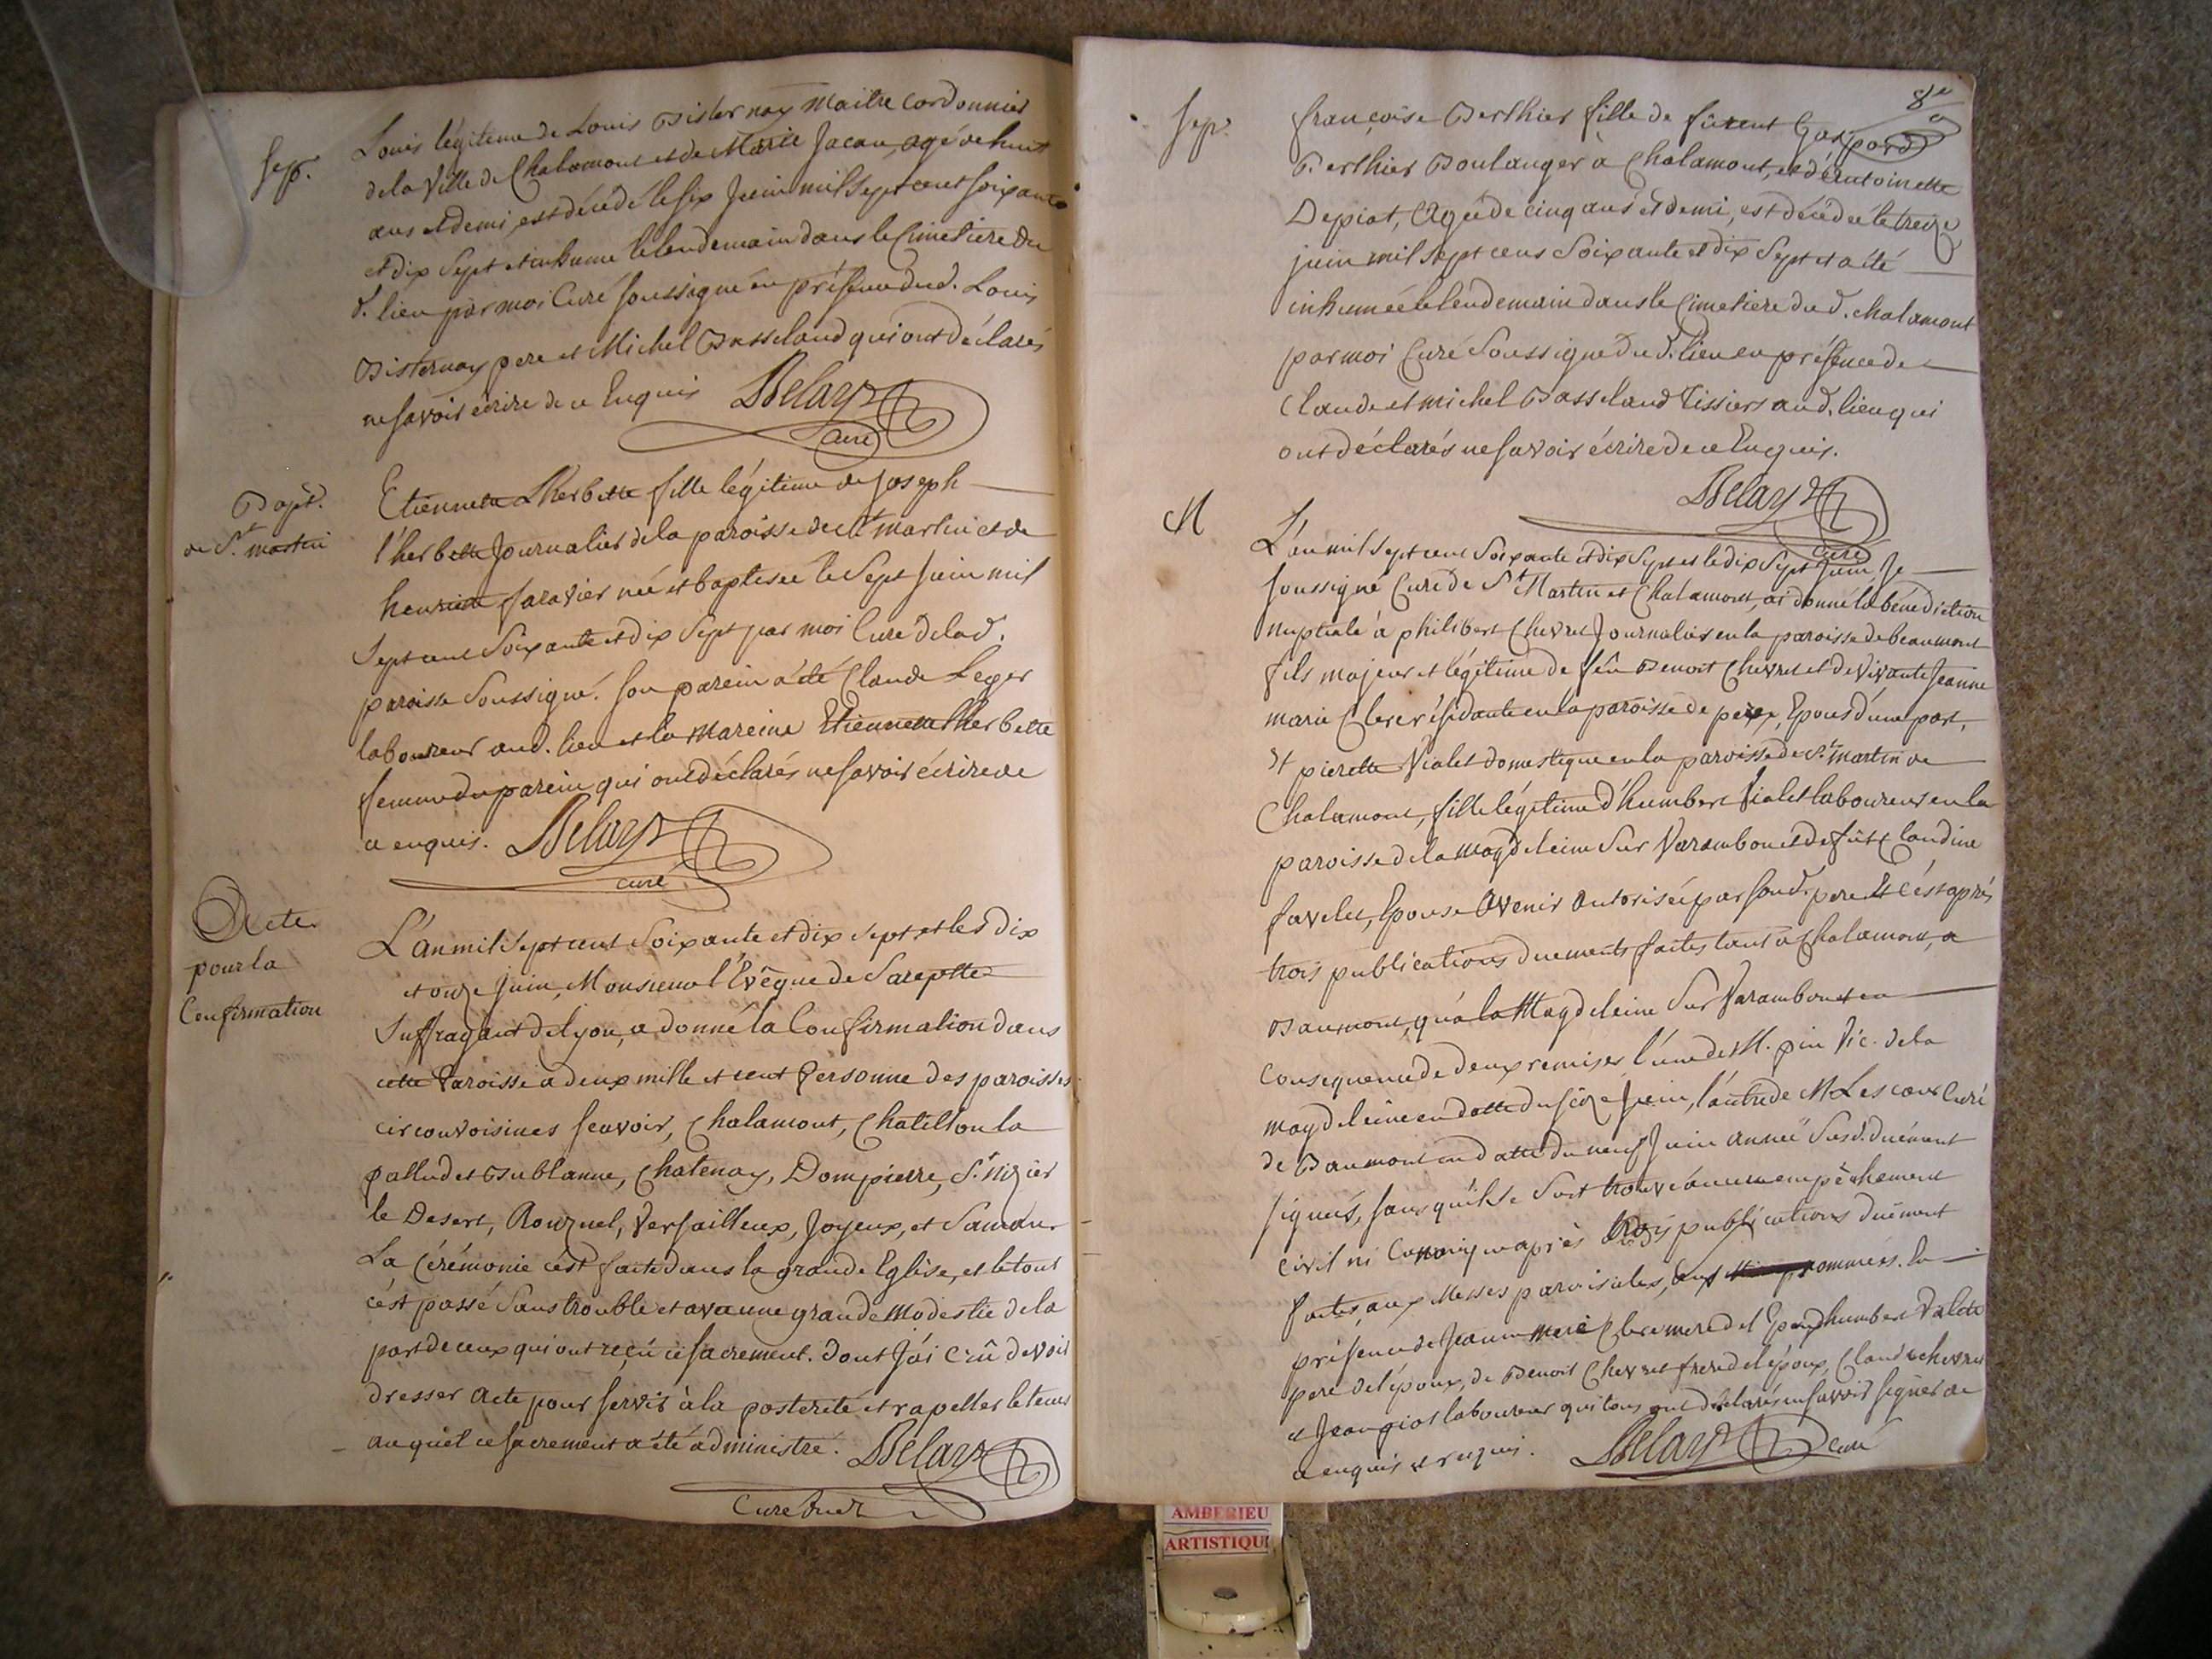 Sep.
Louis légitime de Louis Bisternay Maitre Cordonnier
de la Ville de Chalamont et de Marie Jacau, agé de huit
ans et demi, est décédé le six Juin mil sept cent soixante
et dix sept et inhumé le lendemain dans le Cimetiere du
d. lieu par moi Curé soussigné en présence dud. Louis
Bisternay pere et Michel Basseland qui ont déclarés
ne savoir écrire de ce Enquis Delary
Curé
Bapt.
de St. martin
Etiennette Lherbette fille légitime de Joseph
l'herbette Journalier de la paroisse de St martin et de
henriette faravier née et baptisée le Sept Juin mil
Sept cent Soixante et dix Sept par moi Curé de lad.
paroisse Soussigné. Son parein a été Claude Leger
laboureur aud. lieu et la mareine Etiennette Lherbette
femme du parein qui ont déclarés ne savoir écrire de
ce enquis. Delary
curé
Acte
pour la
Confirmation
L'an mil Sept cent Soixante et dix sept et les dix
et onze Juin, Monsieur l'Evêque de Sarepte
Suffragant de lyon, a donné la Confirmation dans
cette Paroisse a deux mille et cent Personne des paroisses
circonvoisines scavoir, Chalamont, Chatillon la
pallud et Bublanne, Chatenay, Dompierre, St. nizier
le Desert, Ronzuel, Versailleux, Joyeux, et Samans
La Cérémonie c'est faite dans la grande Eglise, et le tout
c'est passé Sans trouble et avec une grande modestie de la
part de ceux qui ont reçû ce sacrement. Dont J'ai Crû devoir
dresser Acte pour servir à la posterité et rapeller le tems
auquel ce sacrement a été administré. Delary
Curé
8e
Sep.
françoise Berthier fille de Gaspard
Berthier Boulanger à Chalamont, et d'Antoinette
Depiat, Agée de cinq ans et demi, est décédée le treize
juin mil sept cens Soixante et dix Sept et a été
inhumée le lendemain dans le Cimetiere du d. chalamont
par moi Curé Soussigné du d. lieu en présence de
Claude et michel Basseland Tissiers aud. lieu qui
ont déclarés ne savoir écrire de ce Enquis.
Delary
Curé
M
L'an mil Sept cent Soixante et dix Sept et le dix Sept Juin, Je
soussigné Curé de St Martin et Chalamont, ai donné la bénédiction
nuptiale à philibert Chevret Journalier en la paroisse de beaumont
fils majeur et légitime de feû Benoit Chevret et de vivante Jeanne
marie Clerc résidante en la paroisse de Epoux d'une part,
Et pierette Violet domestique en la paroisse de St. martin de
Chalamont, fille légitime d'humbert Violet laboureur en la
paroisse de la magdeleine Sur Varambon et de Claudine
favelet, Epouse Avenir Autorisée par sond. pere Et c'est aprés
trois publications duements faites tant à Chalamont, a
Baumont, qu'à la Magdeleine Sur Varambon et en
consequence de deux remises, l'une de M. pin Vic. de la
magdeleine en datte du seize Juin, l'autre de M. Lescour Curé
de Baumont en datte du neuf Juin année susd. duement
signés, sans qu'il se soit trouvé aucun empêchement
civil ni Canonique après trois publications duëment
faites, aux Messes paroissiales,
présence de Jeanne marie Clerc mere de l'Epoux, d'humbert Violet
pere de l'épouse, de Benoit Chevret frere de l'époux, Claude chevret
et Jean giot laboureur qui tous ont déclarés ne savoir signer de
ce enquis et requis. Delary Curé
AMBERIEU
ARTISTIQU